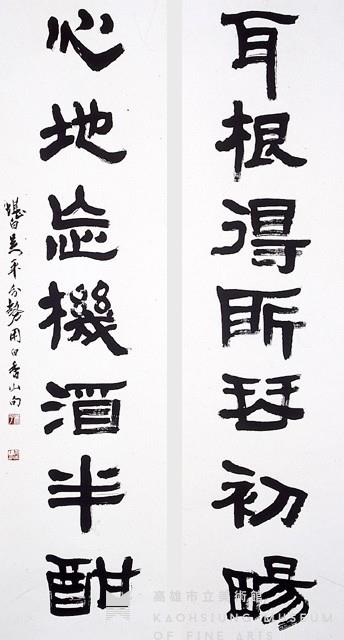 耳根得所琴初暢
心地忘機酒半酣
堪白吳平分用白香山句
高雄市立美術館
KAOHSIUNG MUSEUM
OF FINE ARTS